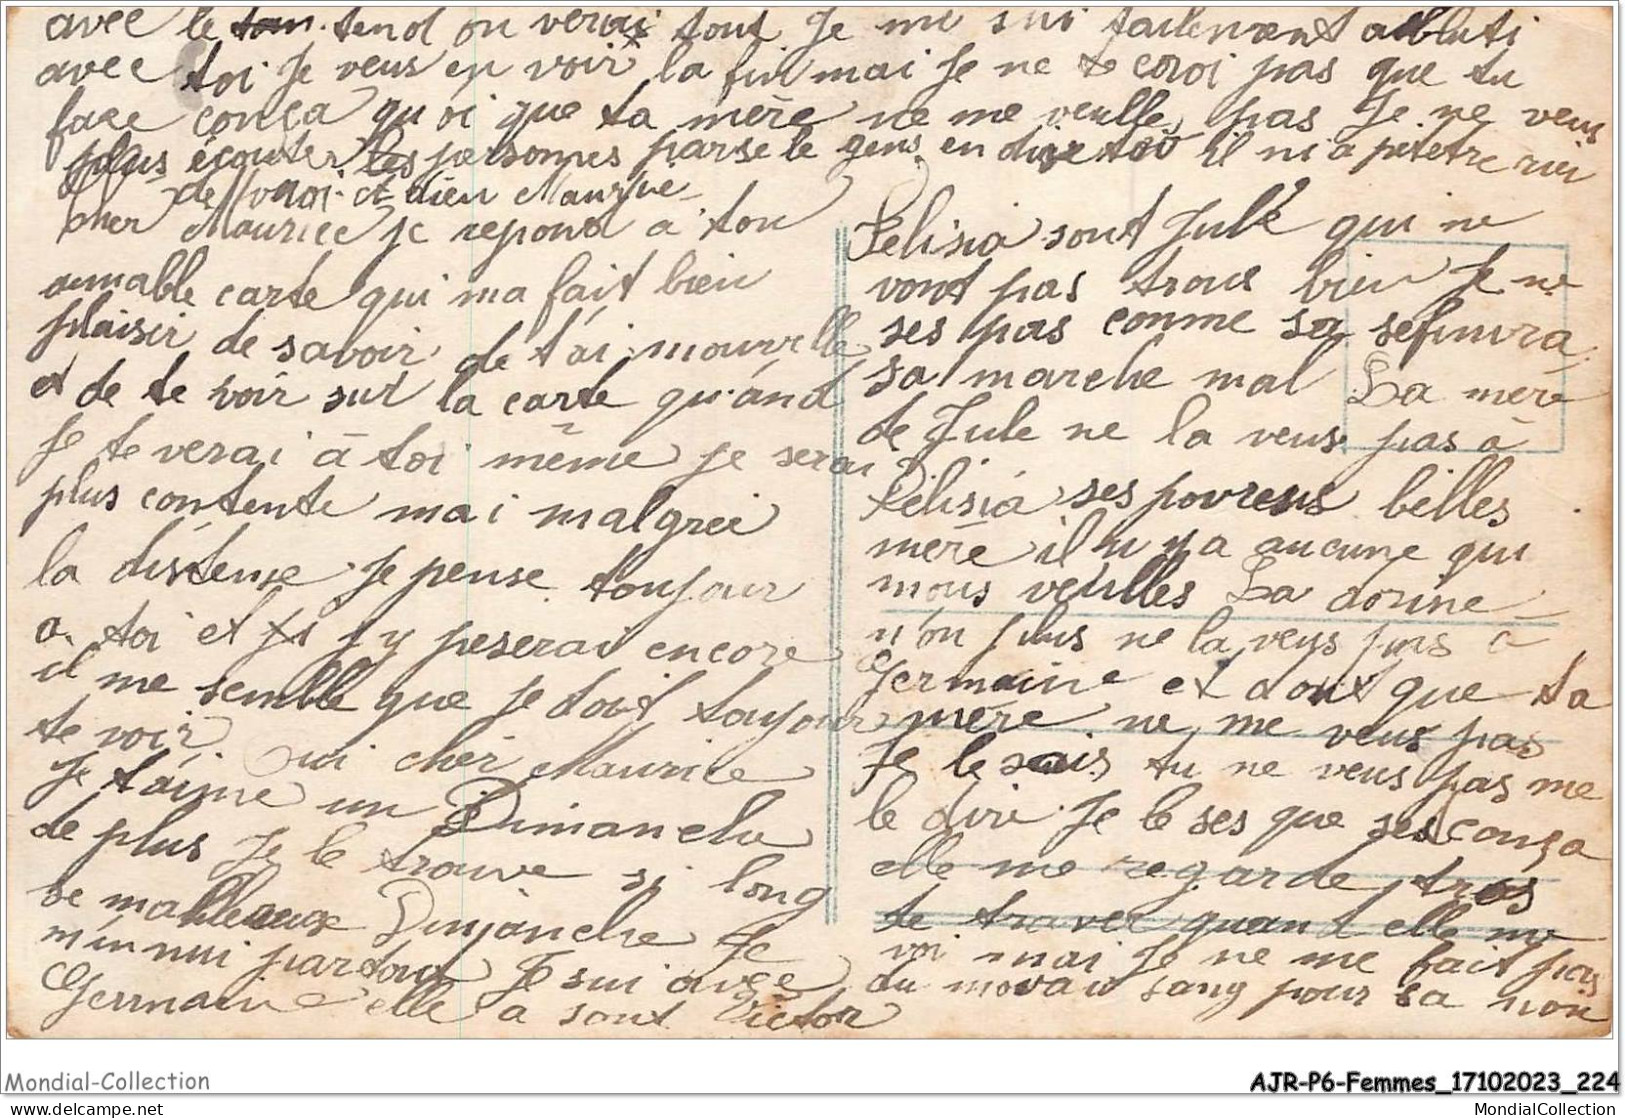 avec le tend on verai tout Je me sui tailement abbuti
avec toi Je veus en voir la fin mai Je ne te croi pas que tu
face conça quoi que ta mère ne me veulle pas Je ne veus
plus écouter les personnes parse le gens en dise tou il ni a petetre rien
de vrai et dien Maurice
Cher Maurice je repond a ton
aimable carte qui ma fait bien
plaisir de savoir de tai nouvelle
et de te voir sur la carte quand
Je te verai à toi même je serai
plus contente mai malgrei
la distense Je pense toujour
a toi et j'y peserai encore
il me semble que Je doit toujour
te voir Oui cher Maurice
Je t'aime un Dimanche
de plus Je le trouve si long
se malleeux Dimanche Je
m'innui partous Je sui avec
Germaine elle a sont Victor
Felisia sont Jule qui ne
vont pas trous bien Je ne
ses pas comme sa sefinira
sa marche mal La mère
de Jule ne la veus pas à
Felisia ses povres belles
mère il n y a aucune qui
nous veulles La donine
n'on plus ne la veus pas à
Germaine et dont que ta
mère ne me veus pas
Je le sais tu ne veus pas me
le dire Je le ses que ses conça
elle me regarde tres
de traver quand elle me
voi mai Je ne me fait pas
du movai sang pour sa non
Mondial-Collection
AJR-P6-Femmes_17102023_224
delcampe.net
MondialCollection